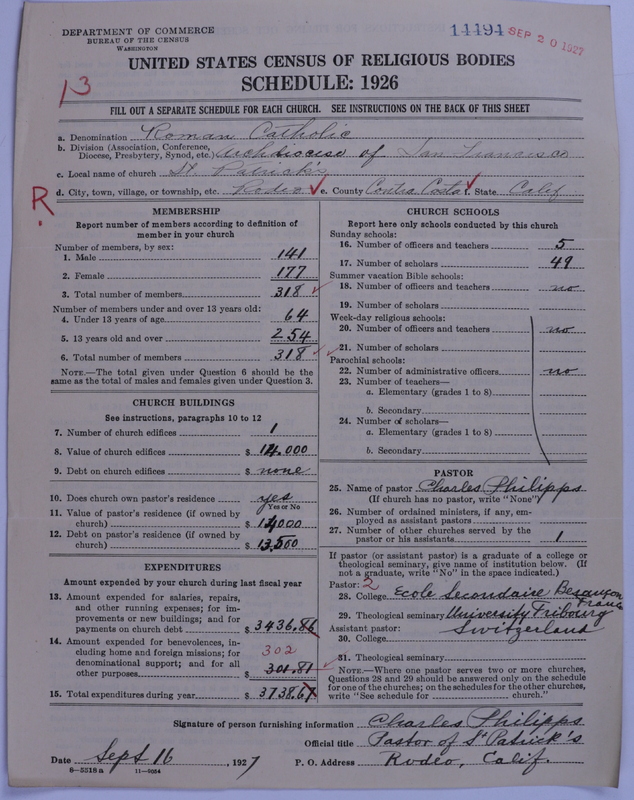 DEPARTMENT OF COMMERCE
BUREAU OF THE CENSUS
WASHINGTON
14194 SEP 20 1927
UNITED STATES CENSUS OF RELIGIOUS BODIES
SCHEDULE: 1926
13
FILL OUT A SEPARATE SCHEDULE FOR EACH CHURCH. SEE INSTRUCTIONS ON THE BACK OF THIS SHEET
a. Denomination Roman Catholic
b. Division (Association, Conference,
Diocese, Presbytery, Synod, etc.) Archdiocese of San Francisco
c. Local name of church St. Patrick's
d. City, town, village, or township, etc. Rodeo e. County Contra Costa f. State Calif
R.
MEMBERSHIP
Report number of members according to definition of
member in your church
Number of members, by sex:
1. Male 141
2. Female 177
3. Total number of members 318
Number of members under and over 13 years old:
4. Under 13 years of age 64
5. 13 years old and over 254
6. Total number of members 318
NOTE.—The total given under Question 6 should be
the same as the total of males and females given under Question 3.
CHURCH BUILDINGS
See instructions, paragraphs 10 to 12
7. Number of church edifices 1
8. Value of church edifices $ 14,000
9. Debt on church edifices $ none
10. Does church own pastor's residence yes
Yes or No
11. Value of pastor's residence (if owned by
church) $ 14000
12. Debt on pastor's residence (if owned by
church) $ 13,500
EXPENDITURES
Amount expended by your church during last fiscal year
13. Amount expended for salaries, repairs,
and other running expenses; for im-
provements or new buildings; and for
payments on church debt $ 3436,86
14. Amount expended for benevolences, in-
cluding home and foreign missions; for
denominational support; and for all
other purposes 302
$ 301.81
15. Total expenditures during year $ 3738.67
CHURCH SCHOOLS
Report here only schools conducted by this church
Sunday schools:
16. Number of officers and teachers 5
17. Number of scholars 49
Summer vacation Bible schools:
18. Number of officers and teachers no
19. Number of scholars
Week-day religious schools:
20. Number of officers and teachers no
21. Number of scholars
Parochial schools:
22. Number of administrative officers no
23. Number of teachers—
a. Elementary (grades 1 to 8)
b. Secondary
24. Number of scholars—
a. Elementary (grades 1 to 8)
b. Secondary
PASTOR
25. Name of pastor Charles Philipps
(If church has no pastor, write "None")
26. Number of ordained ministers, if any, em-
ployed as assistant pastors
27. Number of other churches served by the
pastor or his assistants 1
If pastor (or assistant pastor) is a graduate of a college or
theological seminary, give name of institution below. (If
not a graduate, write "No" in the space indicated.)
Pastor: 2
28. College Ecole Secondaire Besançon France
29. Theological seminary University Fribourg
Assistant pastor: Switzerland
30. College
31. Theological seminary
NOTE.—Where one pastor serves two or more churches,
Questions 28 and 29 should be answered only on the schedule
for one of the churches; on the schedules for the other churches,
write "See schedule for church."
Signature of person furnishing information Charles Philipps
Official title Pastor of St Patrick's
Date Sept 16, 1927 P. O. Address Rodeo, Calif.
8—5518 a 11—9054